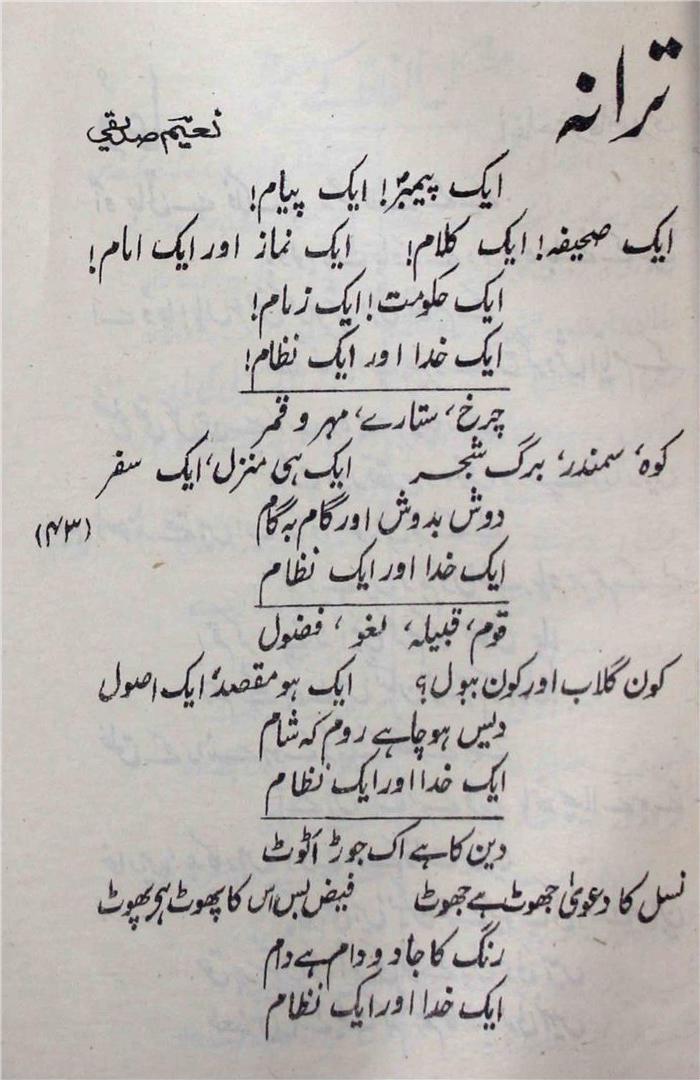 ترانہ
نعیم صدیقی
ایک پیمبرؐ! ایک پیام!
ایک صحیفہ! ایک کلام! ایک نماز اور ایک امام!
ایک حکومت! ایک زمام!
ایک خدا اور ایک نظام!
چرخ، ستارے، مہر و قمر
کوہ، سمندر، برگ شجر ایک ہی منزل، ایک سفر
دوش بدوش اور گام بہ گام
(۴۳)
ایک خدا اور ایک نظام
قوم، قبیلہ، لغو، فضول
کون گلاب اور کون ببول؟ ایک ہو مقصد، ایک اصول
دیس ہو چاہے روم کہ شام
ایک خدا اور ایک نظام
دین کا ہے اک جوڑ اَٹوٹ
نسل کا دعویٰ جھوٹ ہے جھوٹ فیض بس اس کا پھوٹ ہی پھوٹ
رنگ کا جادو دام ہے دام
ایک خدا اور ایک نظام